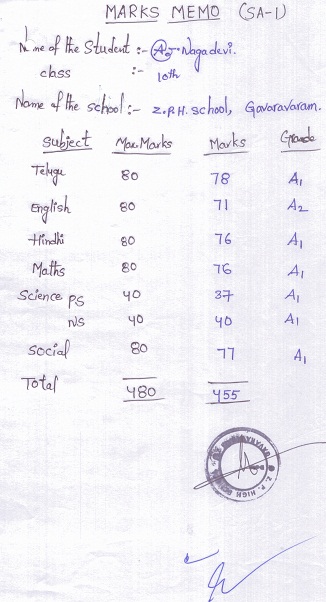 MARKS MEMO (SA-1)
Name of the Student :- A. Nagadevi.
class :- 10th
Name of the school :- Z.P.H. School, Gavaravaram.
Subject Max.Marks Marks Grade
Telugu 80 78 A1
English 80 71 A2
Hindhi 80 76 A1
Maths 80 76 A1
Science PS 40 37 A1
NS 40 40 A1
Social 80 77 A1
Total 480 455
Z. P. HIGH